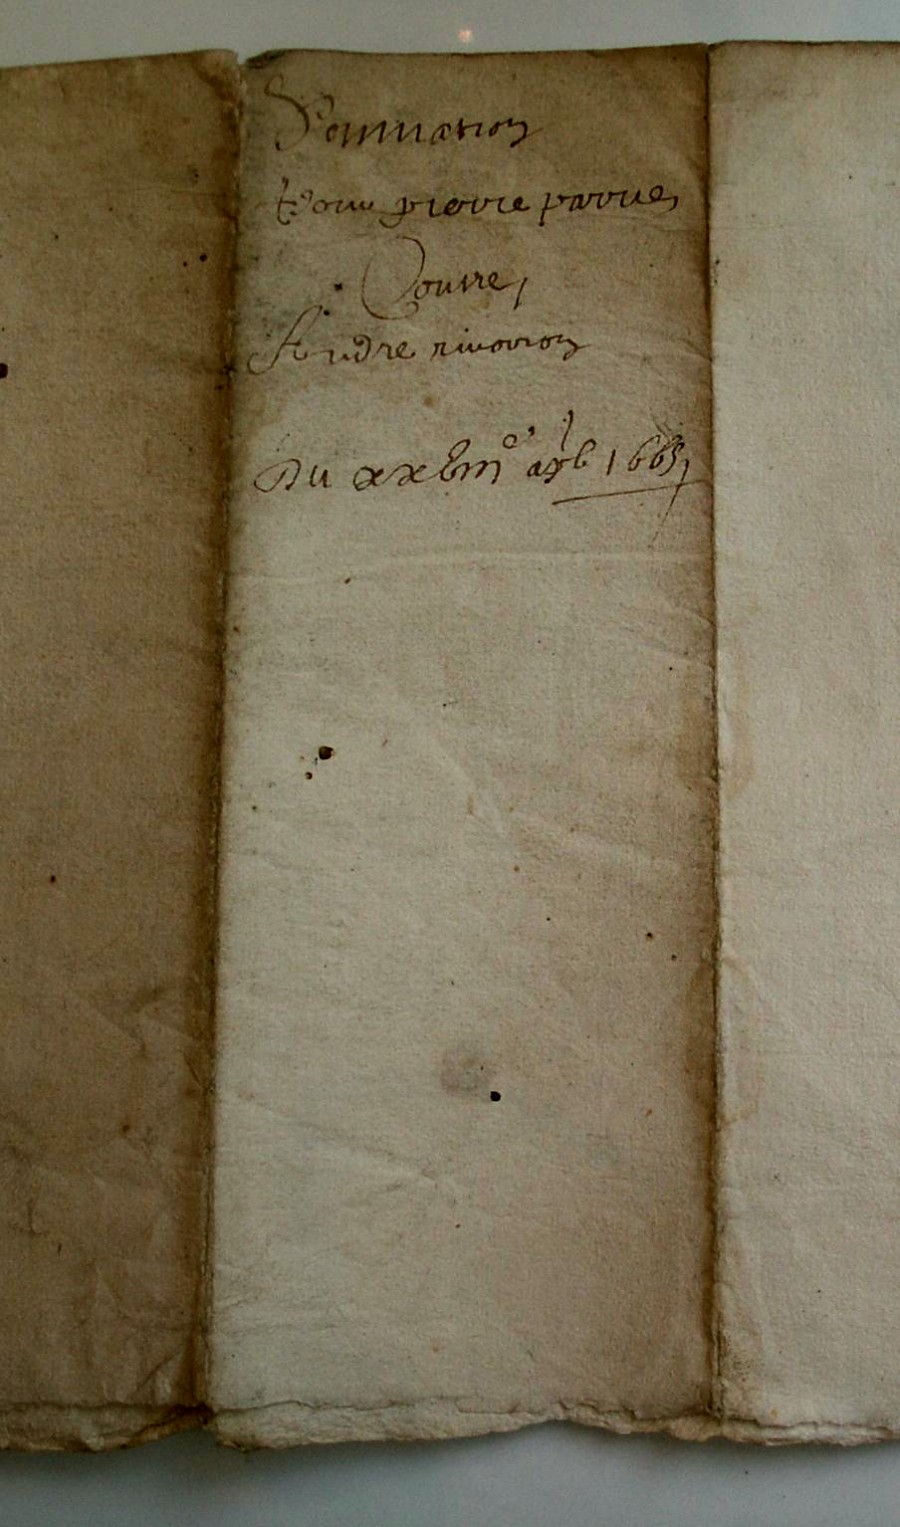 Sommation
Pour pierre parrue
Contre,
Andre rivoiron
Du xxbme 1665